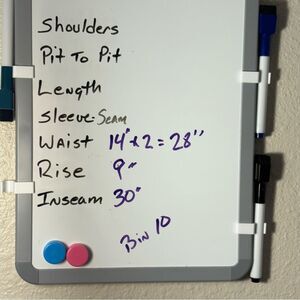 Shoulders
Pit To Pit
Length
Sleeve-Seam
Waist 14"x2=28"
Rise 9"
Inseam 30"
Bin 10